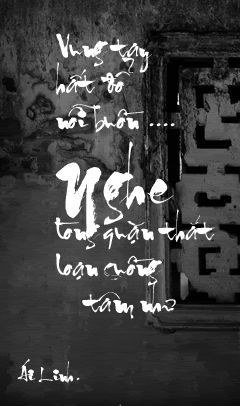 Vung tay
hất đổ
nỗi buồn ....
Nghe
lòng quặn thắt
loạn cuồng
tâm
Ái Linh.